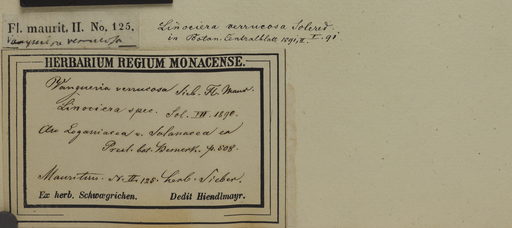 Fl. maurit. II. No. 125.
Vangueria verrucosa
Linociera verrucosa Solered.
in Botan. Centralblatt 1891, II. X. 91
HERBARIUM REGIUM MONACENSE.
Vangueria verrucosa Sieb. Fl. Maur.
Linociera spec. Sol. VII. 1890.
An Loganiacea v. Solanacea ex
Presl. bot. Bemerk. p. 508.
Mauritius. N. II. 125. herb. Sieber.
Ex herb. Schwægrichen. Dedit Hiendlmayr.